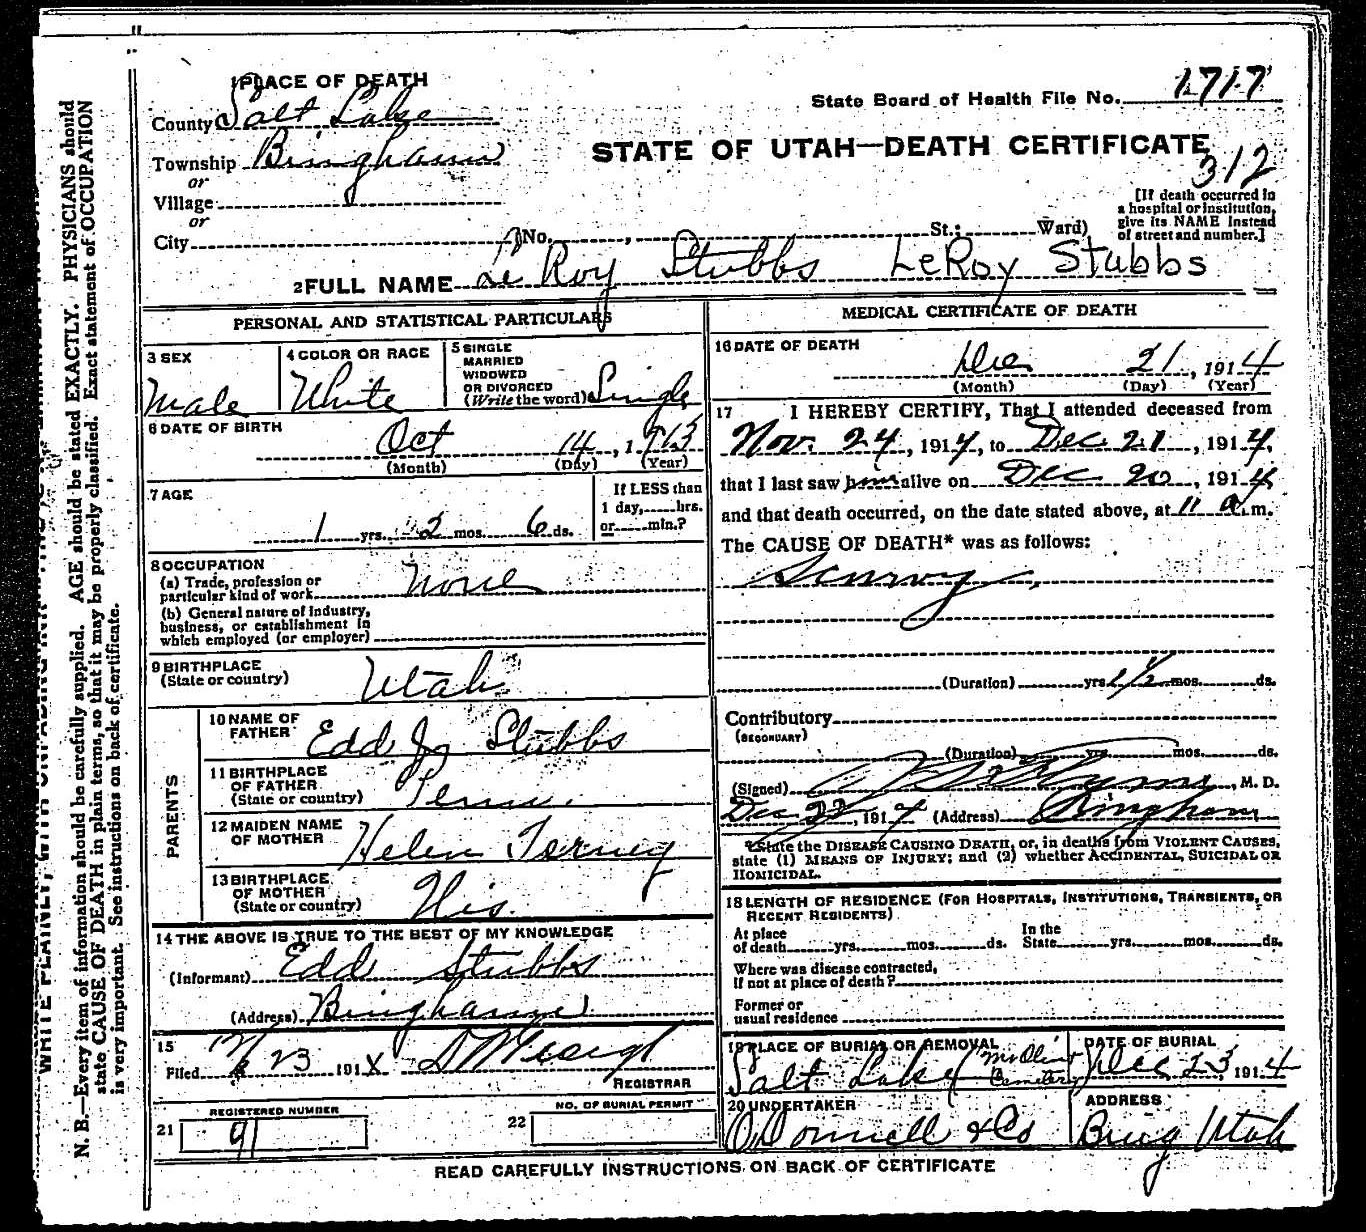 1 PLACE OF DEATH
County Salt Lake
Township Bingham
or
Village
or
City No. , St.; Ward)
State Board of Health File No. 1717
STATE OF UTAH—DEATH CERTIFICATE
312
[If death occurred in
a hospital or institution,
give its NAME instead
of street and number.]
2 FULL NAME Le Roy Stubbs LeRoy Stubbs
PERSONAL AND STATISTICAL PARTICULARS
3 SEX
Male
4 COLOR OR RACE
White
5 SINGLE
MARRIED
WIDOWED
OR DIVORCED
(Write the word) Single
6 DATE OF BIRTH
Oct 14, 1913
(Month) (Day) (Year)
7 AGE
1 yrs. 2 mos. 6 ds.
If LESS than
1 day, hrs.
or min.?
8 OCCUPATION
(a) Trade, profession or
particular kind of work None
(b) General nature of Industry,
business, or establishment in
which employed (or employer)
9 BIRTHPLACE
(State or country) Utah
PARENTS
10 NAME OF
FATHER Edd Stubbs
11 BIRTHPLACE
OF FATHER
(State or country) Penn.
12 MAIDEN NAME
OF MOTHER Helen
13 BIRTHPLACE
OF MOTHER
(State or country) Wis.
14 THE ABOVE IS TRUE TO THE BEST OF MY KNOWLEDGE
(Informant) Edd Stubbs
(Address) Bingham
15
Filed 23 191
REGISTRAR
21 REGISTERED NUMBER
91
22 NO. OF BURIAL PERMIT
MEDICAL CERTIFICATE OF DEATH
16 DATE OF DEATH
Dec 21, 1914
(Month) (Day) (Year)
17 I HEREBY CERTIFY, That I attended deceased from
Nov. 24, 1914, to Dec 21, 1914,
that I last saw him alive on Dec 20, 1914,
and that death occurred, on the date stated above, at 11 a.m.
The CAUSE OF DEATH* was as follows:
Scurvy,
(Duration) yrs. 1 1/2 mos. ds.
Contributory
(SECONDARY)
(Duration) yrs. mos. ds.
(Signed) , M. D.
Dec 22, 1914 (Address) Bingham
*State the DISEASE CAUSING DEATH, or, in deaths from VIOLENT CAUSES,
state (1) MEANS OF INJURY; and (2) whether ACCIDENTAL, SUICIDAL OR
HOMICIDAL.
18 LENGTH OF RESIDENCE (FOR HOSPITALS, INSTITUTIONS, TRANSIENTS, OR
RECENT RESIDENTS)
At place
of death yrs. mos. ds.
In the
State yrs. mos. ds.
Where was disease contracted,
if not at place of death?
Former or
usual residence
19 PLACE OF BURIAL OR REMOVAL
Salt Lake (Mt Olivet
Cemetery)
DATE OF BURIAL
Dec 23, 1914
20 UNDERTAKER
O'Donnell & Co
ADDRESS
Bing Utah
READ CAREFULLY INSTRUCTIONS ON BACK OF CERTIFICATE
WRITE PLAINLY, WITH UNFADING INK
N. B.—Every item of information should be carefully supplied. AGE should be stated EXACTLY. PHYSICIANS should
state CAUSE OF DEATH in plain terms, so that it may be properly classified. Exact statement of OCCUPATION
is very important. See instructions on back of certificate.